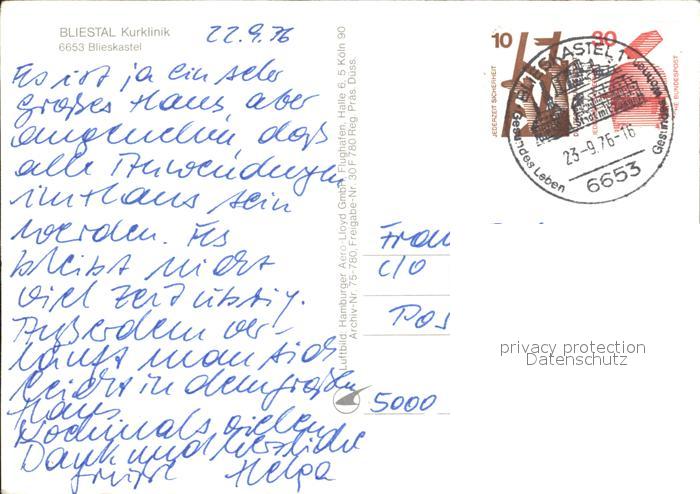 BLIESTAL Kurklinik
6653 Blieskastel
22.9.76
Es ist ja ein sehr
großes Haus, aber
angenehm, daß
alle Anwendungen
im Haus sein
werden. Es
bleibt nicht
viel Zeit übrig.
Außerdem ver-
läuft man sich
leicht in dem großen
Haus.
Nochmals vielen
Dank und herzliche
Grüße Helga
Luftbild: Hamburger Aero-Lloyd GmbH, Flughafen, Halle 6, 5 Köln 90
Archiv-Nr. 75-780, Freigabe-Nr. 30 F 780 Reg. Präs. Düss.
10
JEDERZEIT SICHERHEIT
30
DEUTSCHE BUNDESPOST
BLIESKASTEL 1
Gesundes Leben
Gesundes Wohnen
23.-9.76-16
6653
Frau
c/o
Pos
5000
privacy protection
Datenschutz